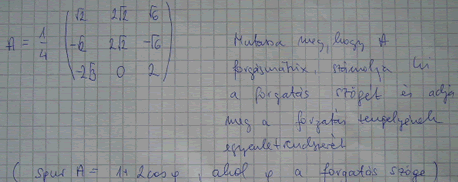 A = 1/4 ( √2 2√2 √6
-√2 2√2 -√6
-2√3 0 2 )
Mutassa meg, hogy A
forgásmátrix, számolja ki
a forgatás szögét és adja
meg a forgatás tengelyének
egyenletrendszerét
( spur A = 1+2cosφ, ahol φ a forgatás szöge )